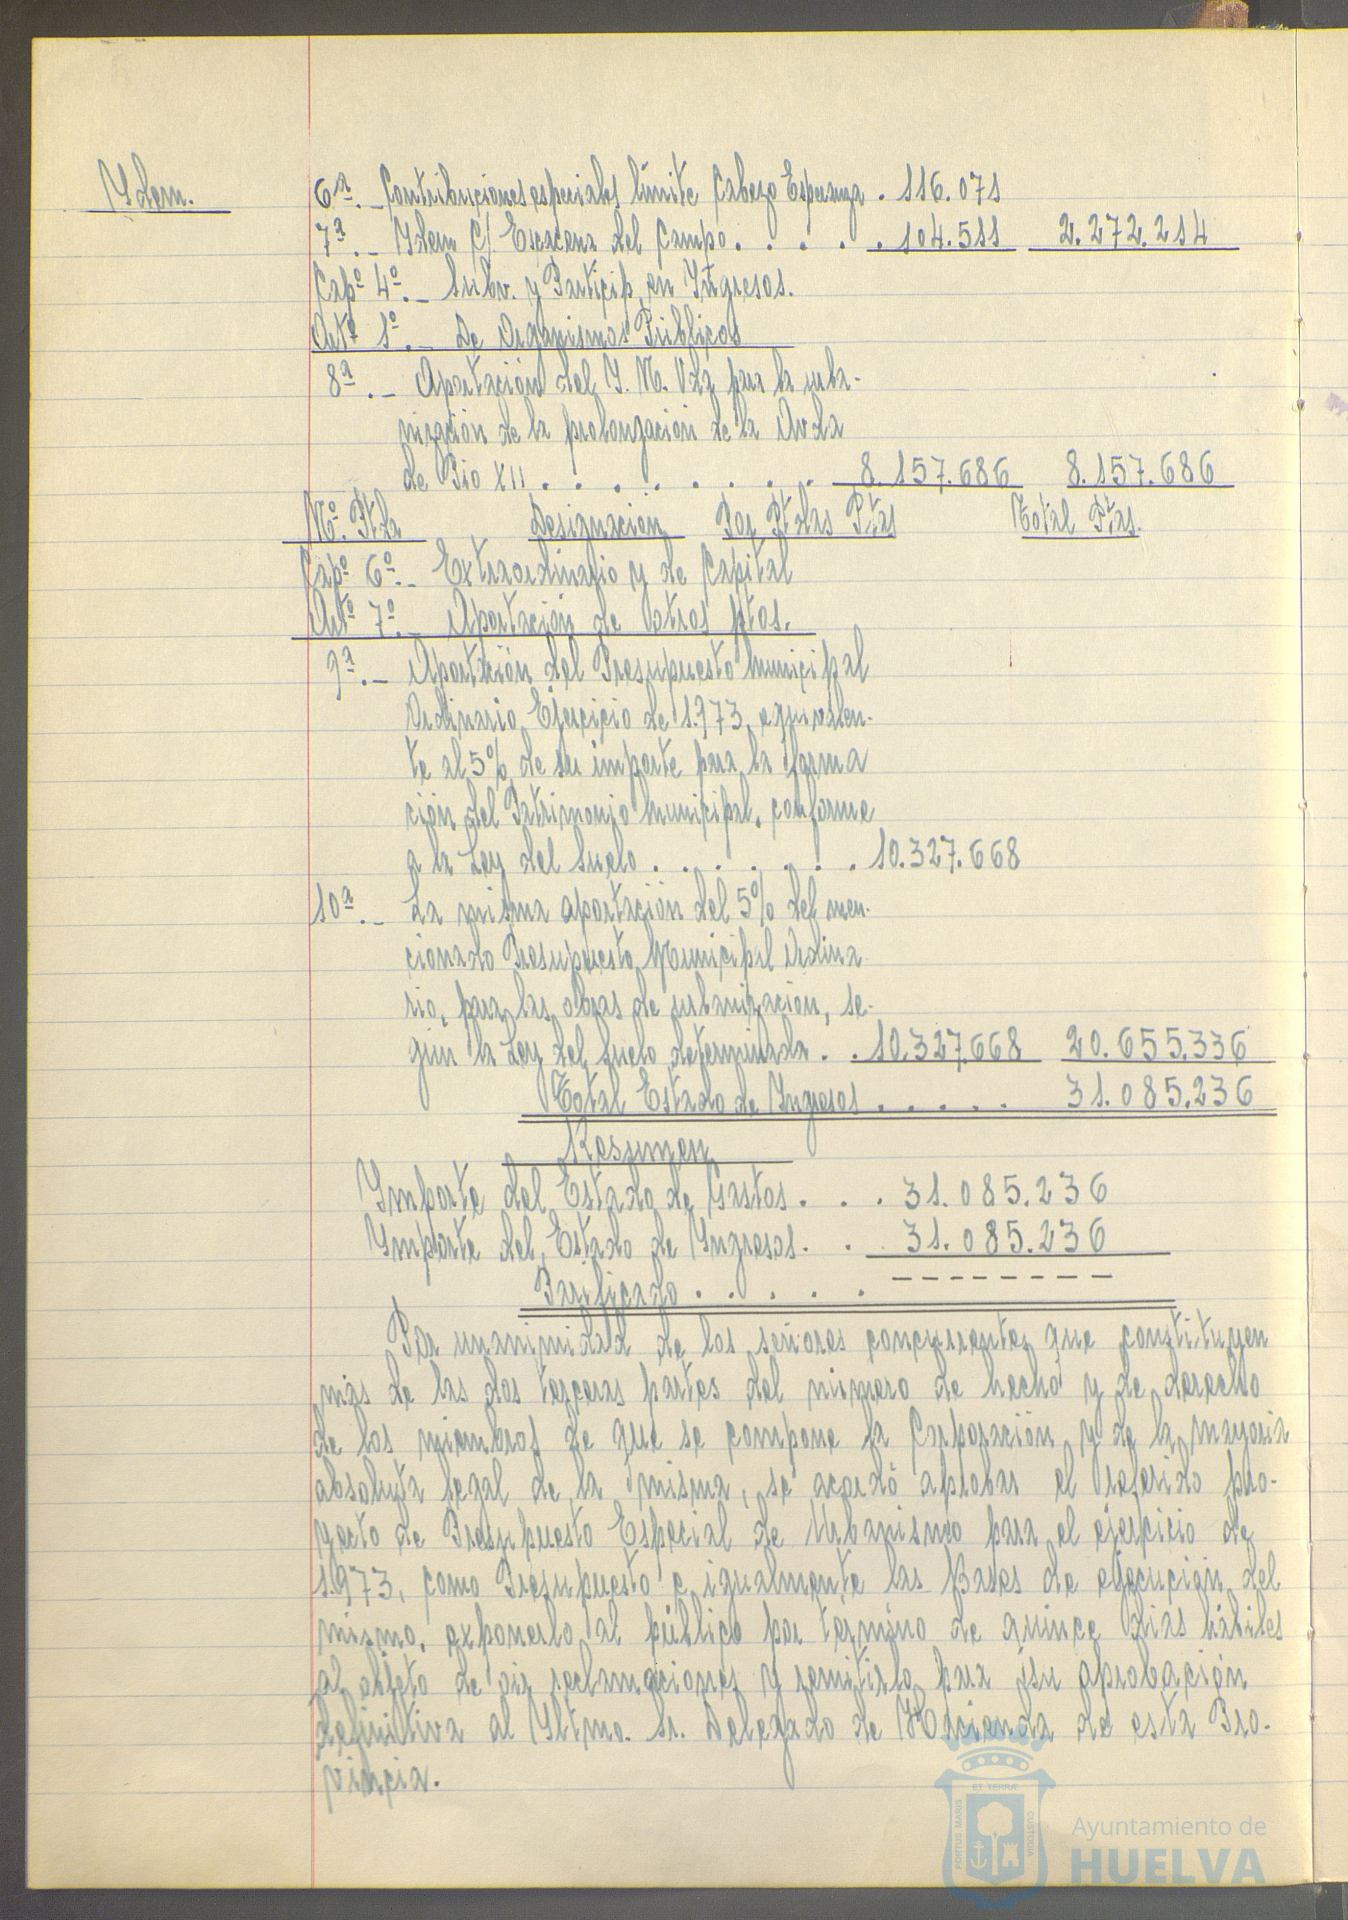 Ydem.
6ª._ Contribuciones especiales límite Cabezo Esperanza . 116.071
7ª._ Ydem C/ Escacena del Campo . . . . . 104.511 2.272.214
Capº 4º._ Subv. y Particip. en Yngresos.
Artº 1º._ De Organismos Públicos
8ª._ Aportación del Y. N. Vda para la urba-
nización de la prolongación de la Avda
de Pio XII . . . . . . . . . 8.157.686 8.157.686
Nº. Ptda Designación Por Ptdas Ptas Total Ptas.
Capº 6º._ Extraordinario y de Capital
Artº 7º._ Aportación de otros ptos.
9ª._ Aportación del Presupuesto Municipal
Ordinario, Ejercicio de 1.973, equivalen-
te al 5% de su importe para la forma
ción del Patrimonio Municipal, conforme
a la Ley del Suelo . . . . . . . 10.327.668
10ª._ La misma aportación del 5% del men-
cionado Presupuesto Municipal Ordina-
rio, para las obras de urbanización, se-
gún la Ley del Suelo determinada . . 10.327.668 20.655.336
Total Estado de Yngresos . . . . . 31.085.236
Resumen
Ymporte del Estado de Gastos . . . 31.085.236
Ymporte del Estado de Yngresos . . 31.085.236
Parificado . . . . . --------
Por unanimidad de los señores concurrentes que constituyen
más de las dos terceras partes del número de hecho y de derecho
de los miembros de que se compone la Corporación y de la mayoría
absoluta legal de la misma, se acordó aprobar el referido pro-
yecto de Presupuesto Especial de Urbanismo para el ejercicio de
1.973, como Presupuesto e igualmente las Bases de ejecución del
mismo, exponerlo al público por término de quince días hábiles
al objeto de oir reclamaciones y remitirlo para su aprobación
definitiva al Yltmo. Sr. Delegado de Hacienda de esta Pro-
vincia.
PORTUS MARIS
ET TERRÆ
CUSTODIA
Ayuntamiento de
HUELVA